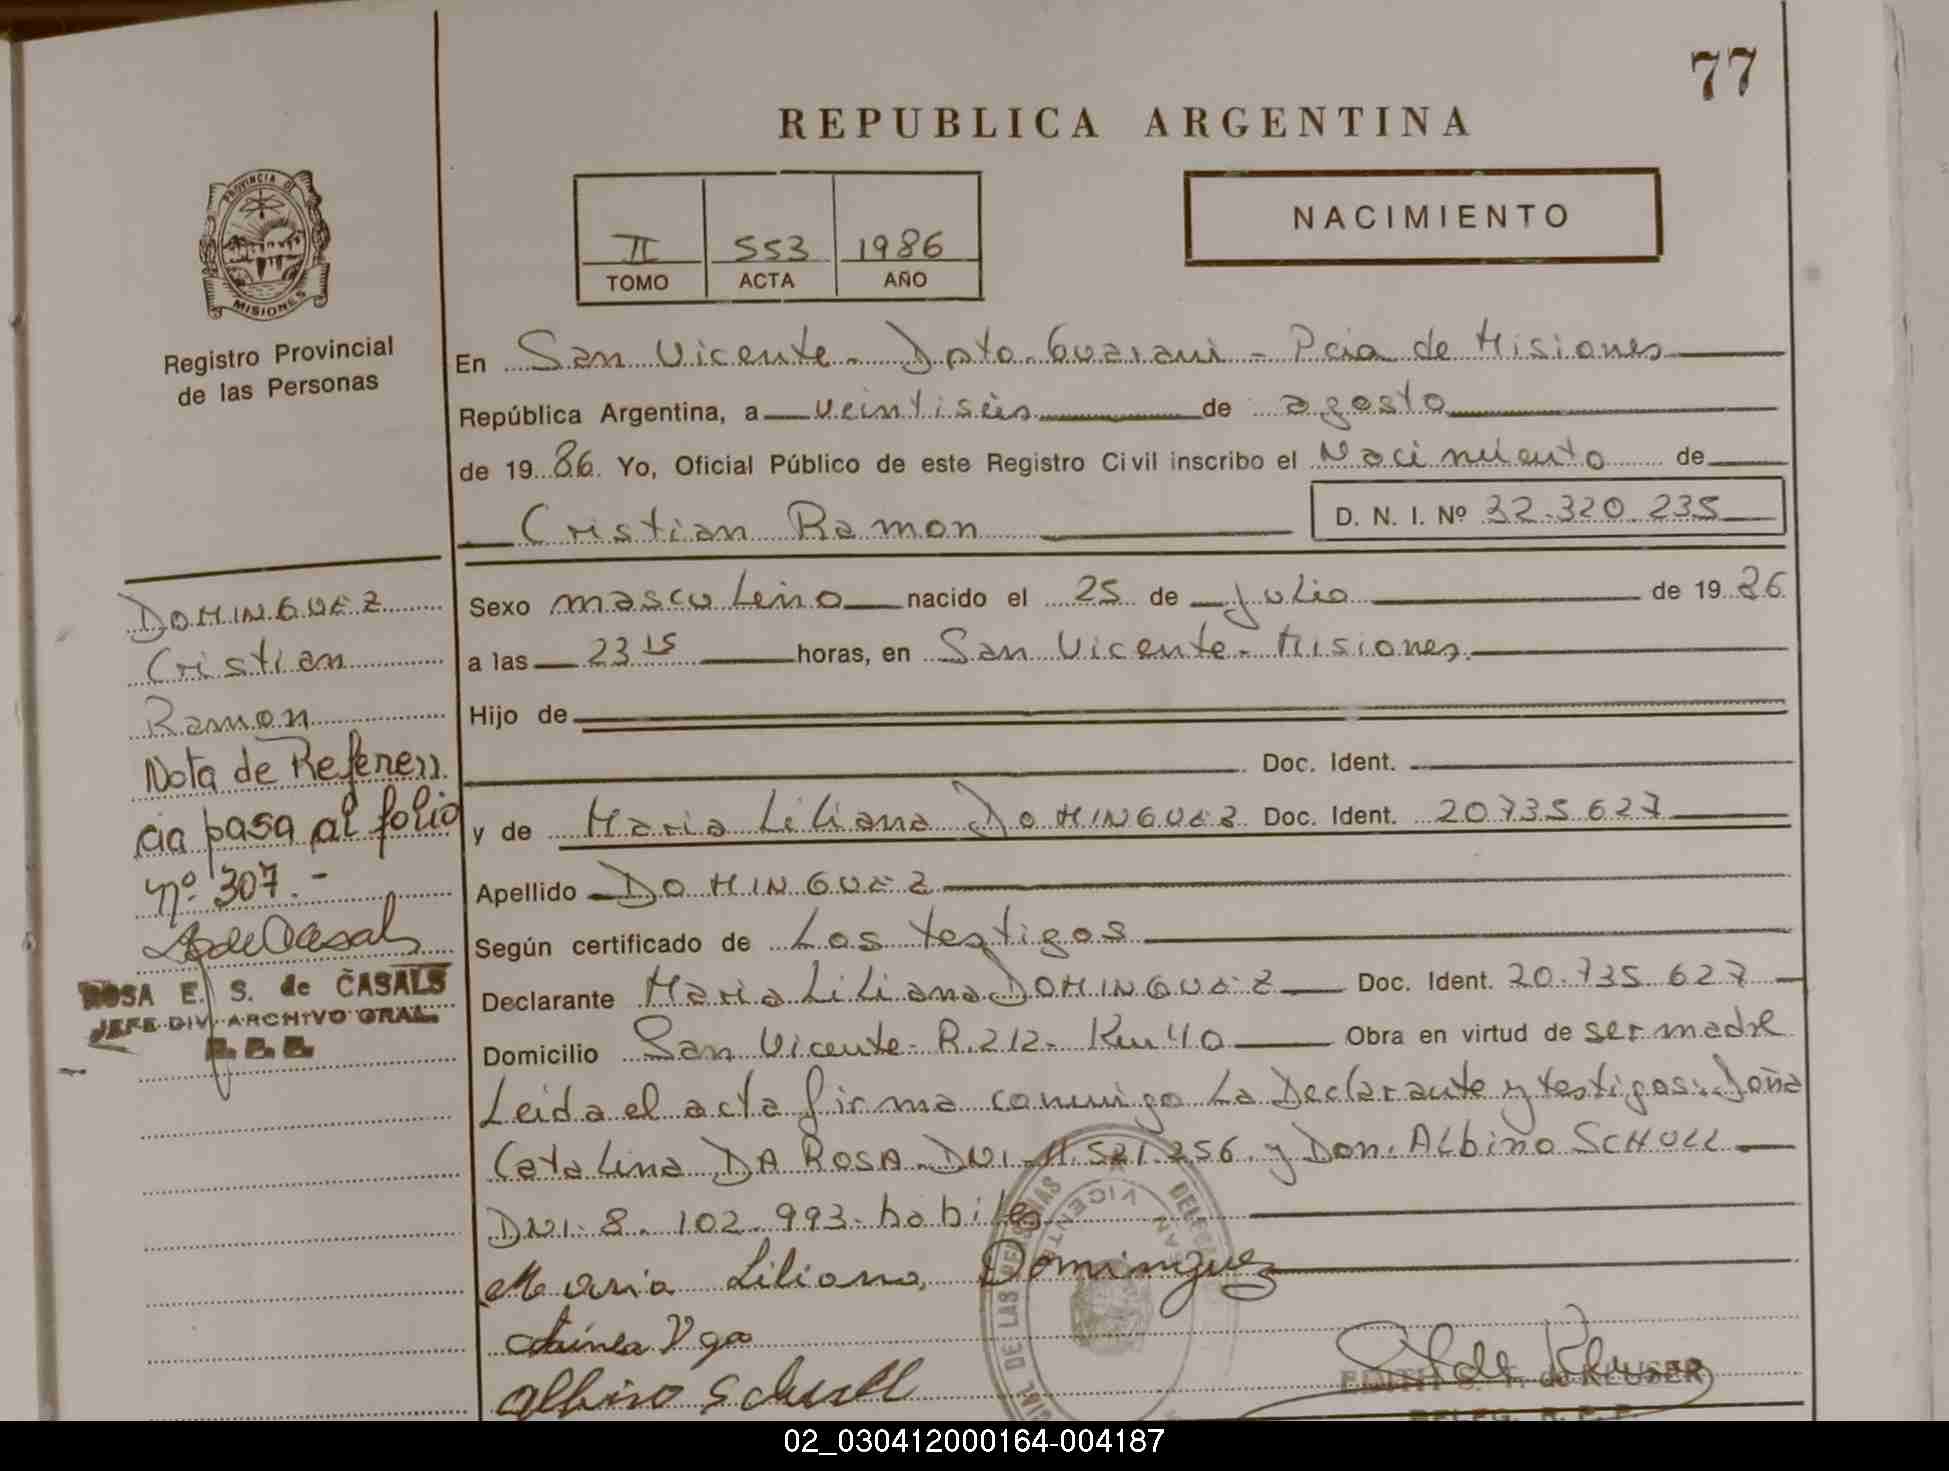 77
REPUBLICA ARGENTINA
PROVINCIA DE
MISIONES
Registro Provincial
de las Personas
II 553 1986
TOMO ACTA AÑO
NACIMIENTO
En San Vicente - Dpto. Guarani - Pcia de Misiones
República Argentina, a veintiséis de agosto
de 1986. Yo, Oficial Público de este Registro Civil inscribo el Nacimiento de
Cristian Ramon D. N. I. Nº 32.320.235
DOMINGUEZ
Cristian
Ramon
Nota de Referen
cia pasa al folio
nº 307.-
ROSA E. S. de CASALS
JEFE DIV. ARCHIVO GRAL.
Sexo masculino nacido el 25 de Julio de 1986
a las 23 15 horas, en San Vicente - Misiones.
Hijo de
Doc. Ident.
y de Maria Liliana DOMINGUEZ Doc. Ident. 20.735.627
Apellido DOMINGUEZ
Según certificado de Los testigos
Declarante Maria Liliana DOMINGUEZ Doc. Ident. 20.735.627
Domicilio San Vicente - R.212 - Km 40 Obra en virtud de ser madre
Leida el acta firma conmigo La Declarante y testigos: Doña
Catalina DA ROSA DNI. 11.521.256. y Don. Albino SCHOLL
DNI. 8.102.993. habiles
Maria Liliana Dominguez
Albino Scholl
02_030412000164-004187